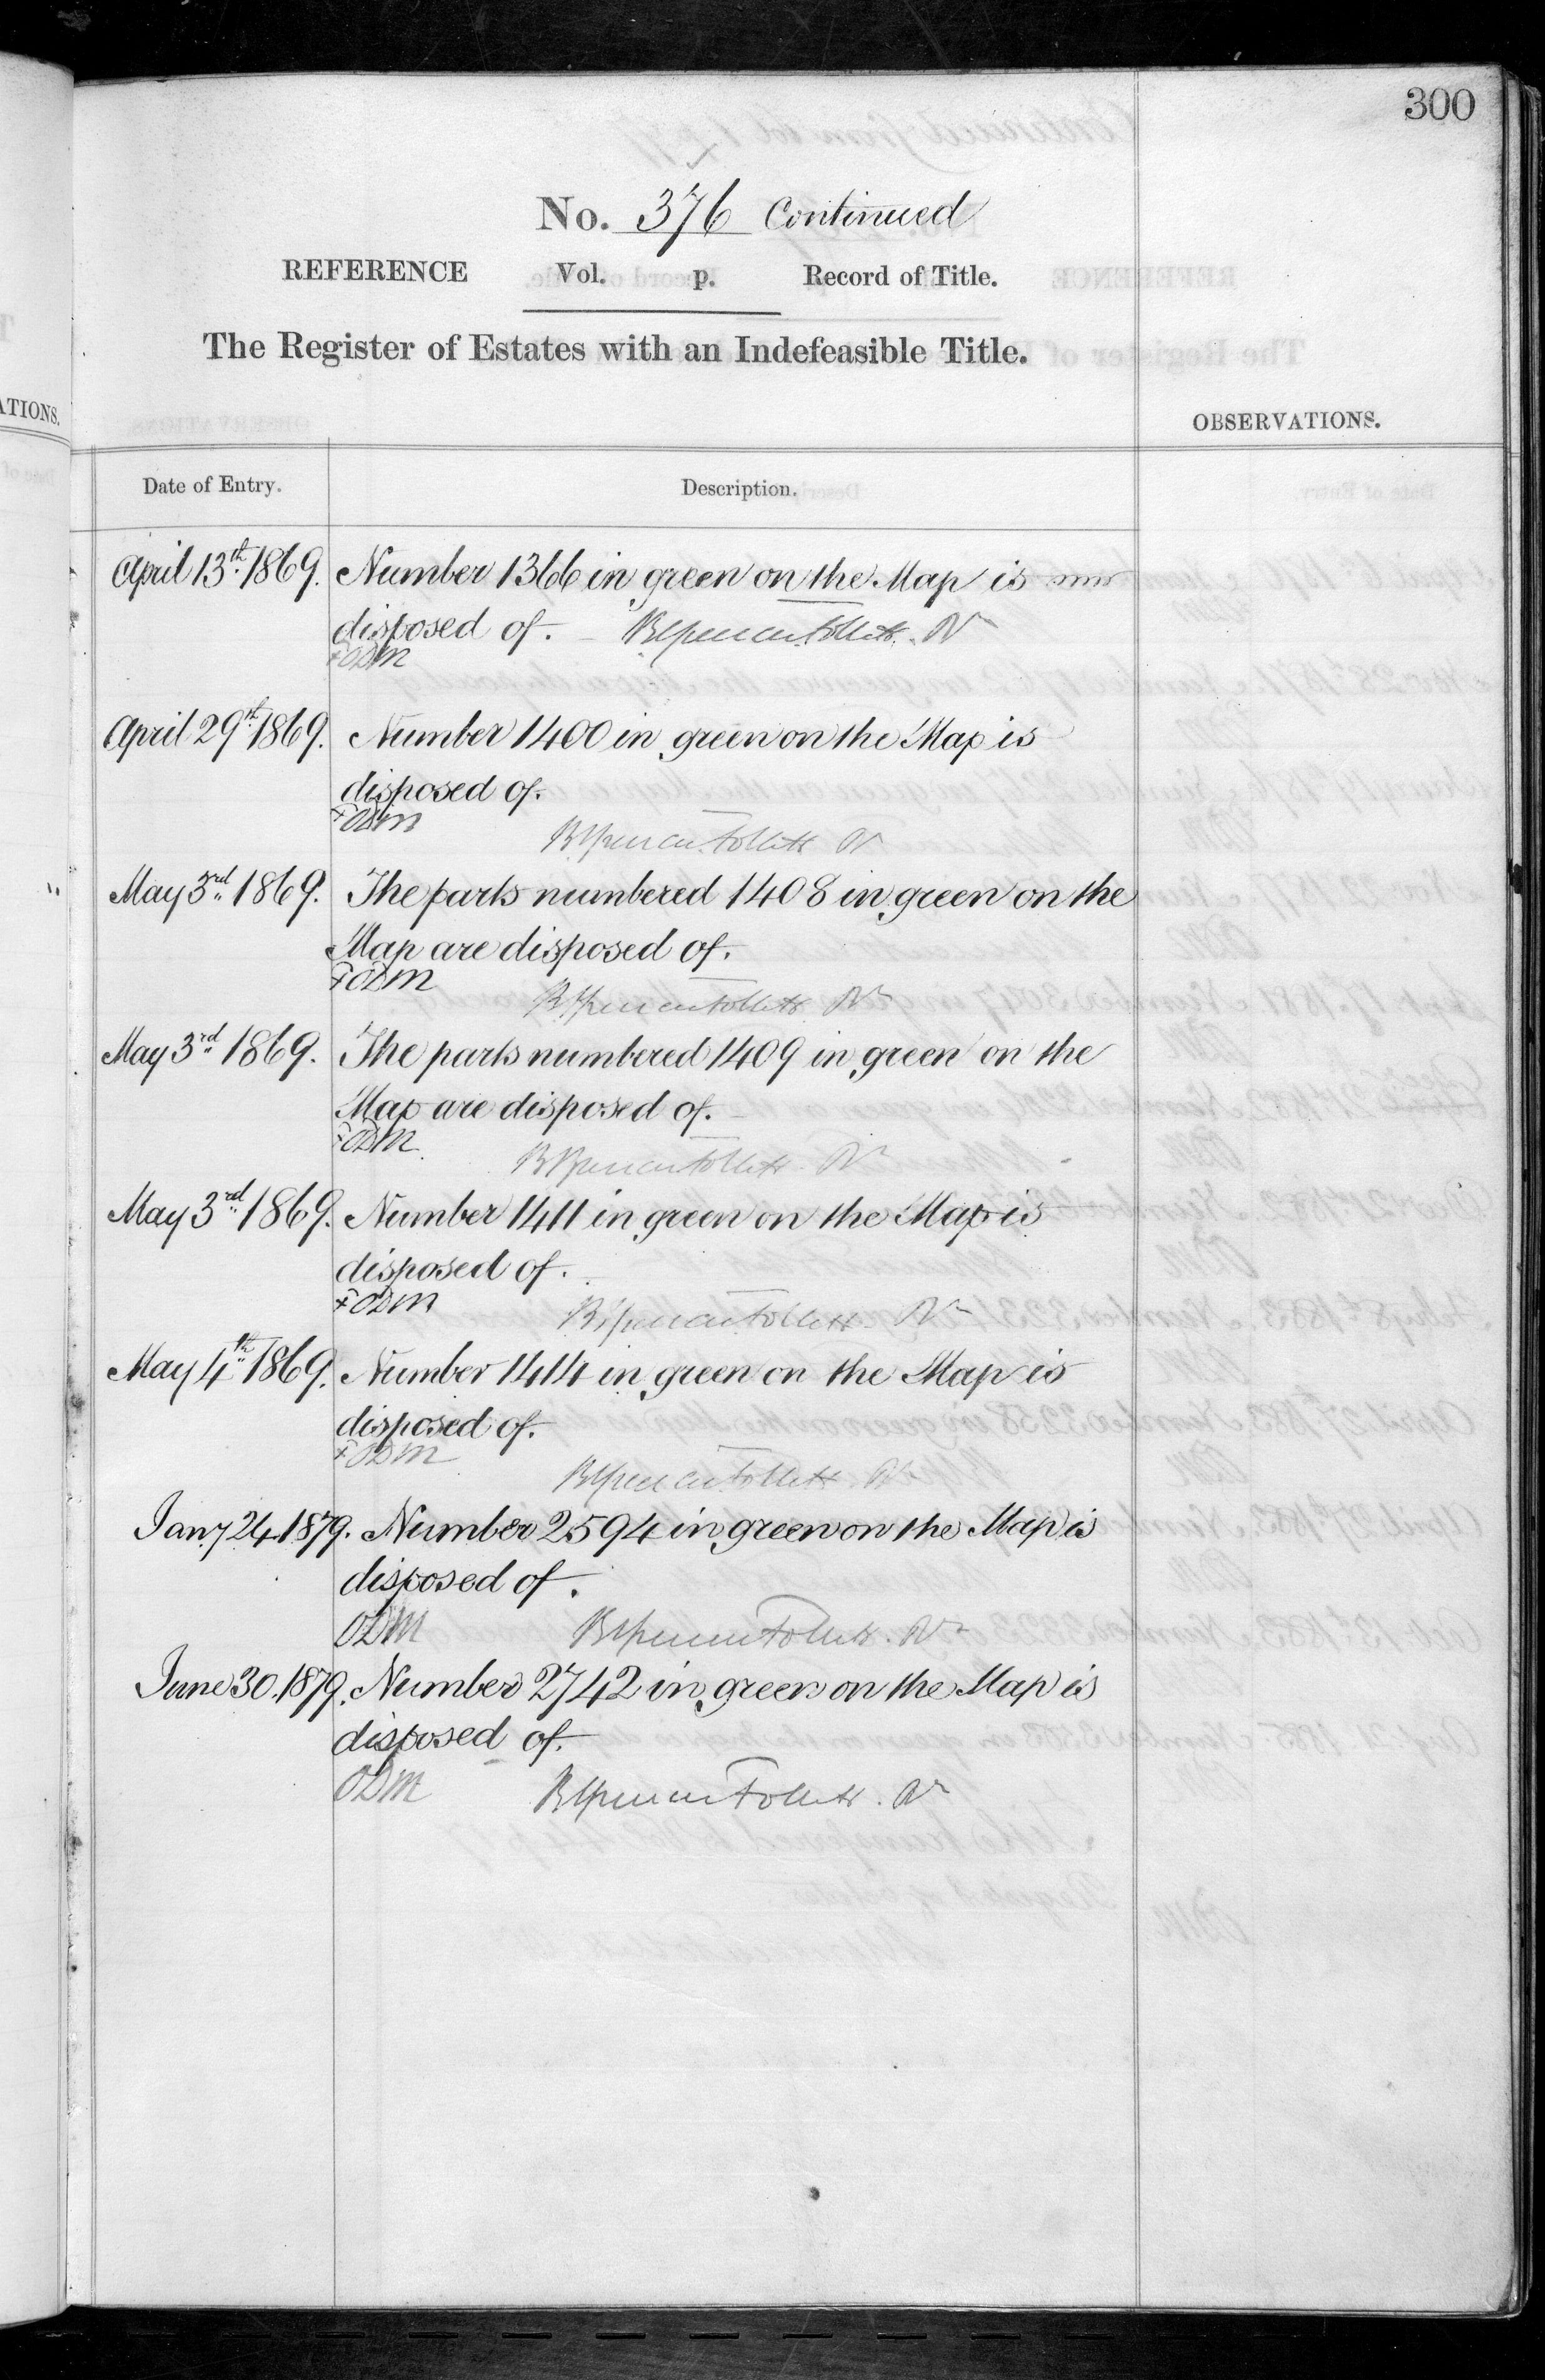 300
No. 376 Continued
REFERENCE Vol. p. Record of Title.
The Register of Estates with an Indefeasible Title.
ATIONS.
OBSERVATIONS.
Date of Entry. Description.
April 13th 1869. Number 1366 in green on the Map is
disposed of.
ODM
April 29th 1869. Number 1400 in green on the Map is
disposed of.
ODM
May 3rd 1869. The parts numbered 1408 in green on the
Map are disposed of.
ODM
May 3rd 1869. The parts numbered 1409 in green on the
Map are disposed of.
ODM
May 3rd 1869. Number 1411 in green on the Map is
disposed of.
ODM
May 4th 1869. Number 1414 in green on the Map is
disposed of.
ODM
Jany 24. 1879. Number 2594 in green on the Map is
disposed of.
ODM
June 30. 1879. Number 2742 in green on the Map is
disposed of.
ODM